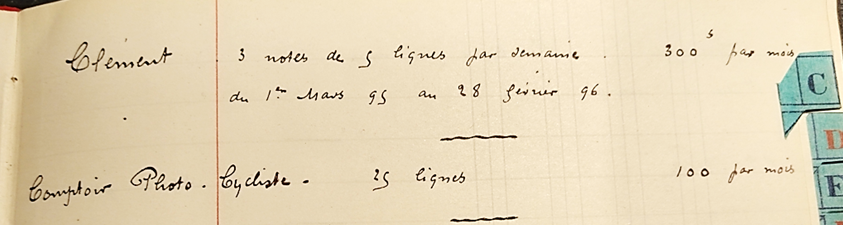 Clément 3 notes de 5 lignes par semaine. 300 f par mois
du 1er Mars 95 au 28 février 96.
Comptoir Photo-Cycliste. 25 lignes 100 par mois
C
D
E